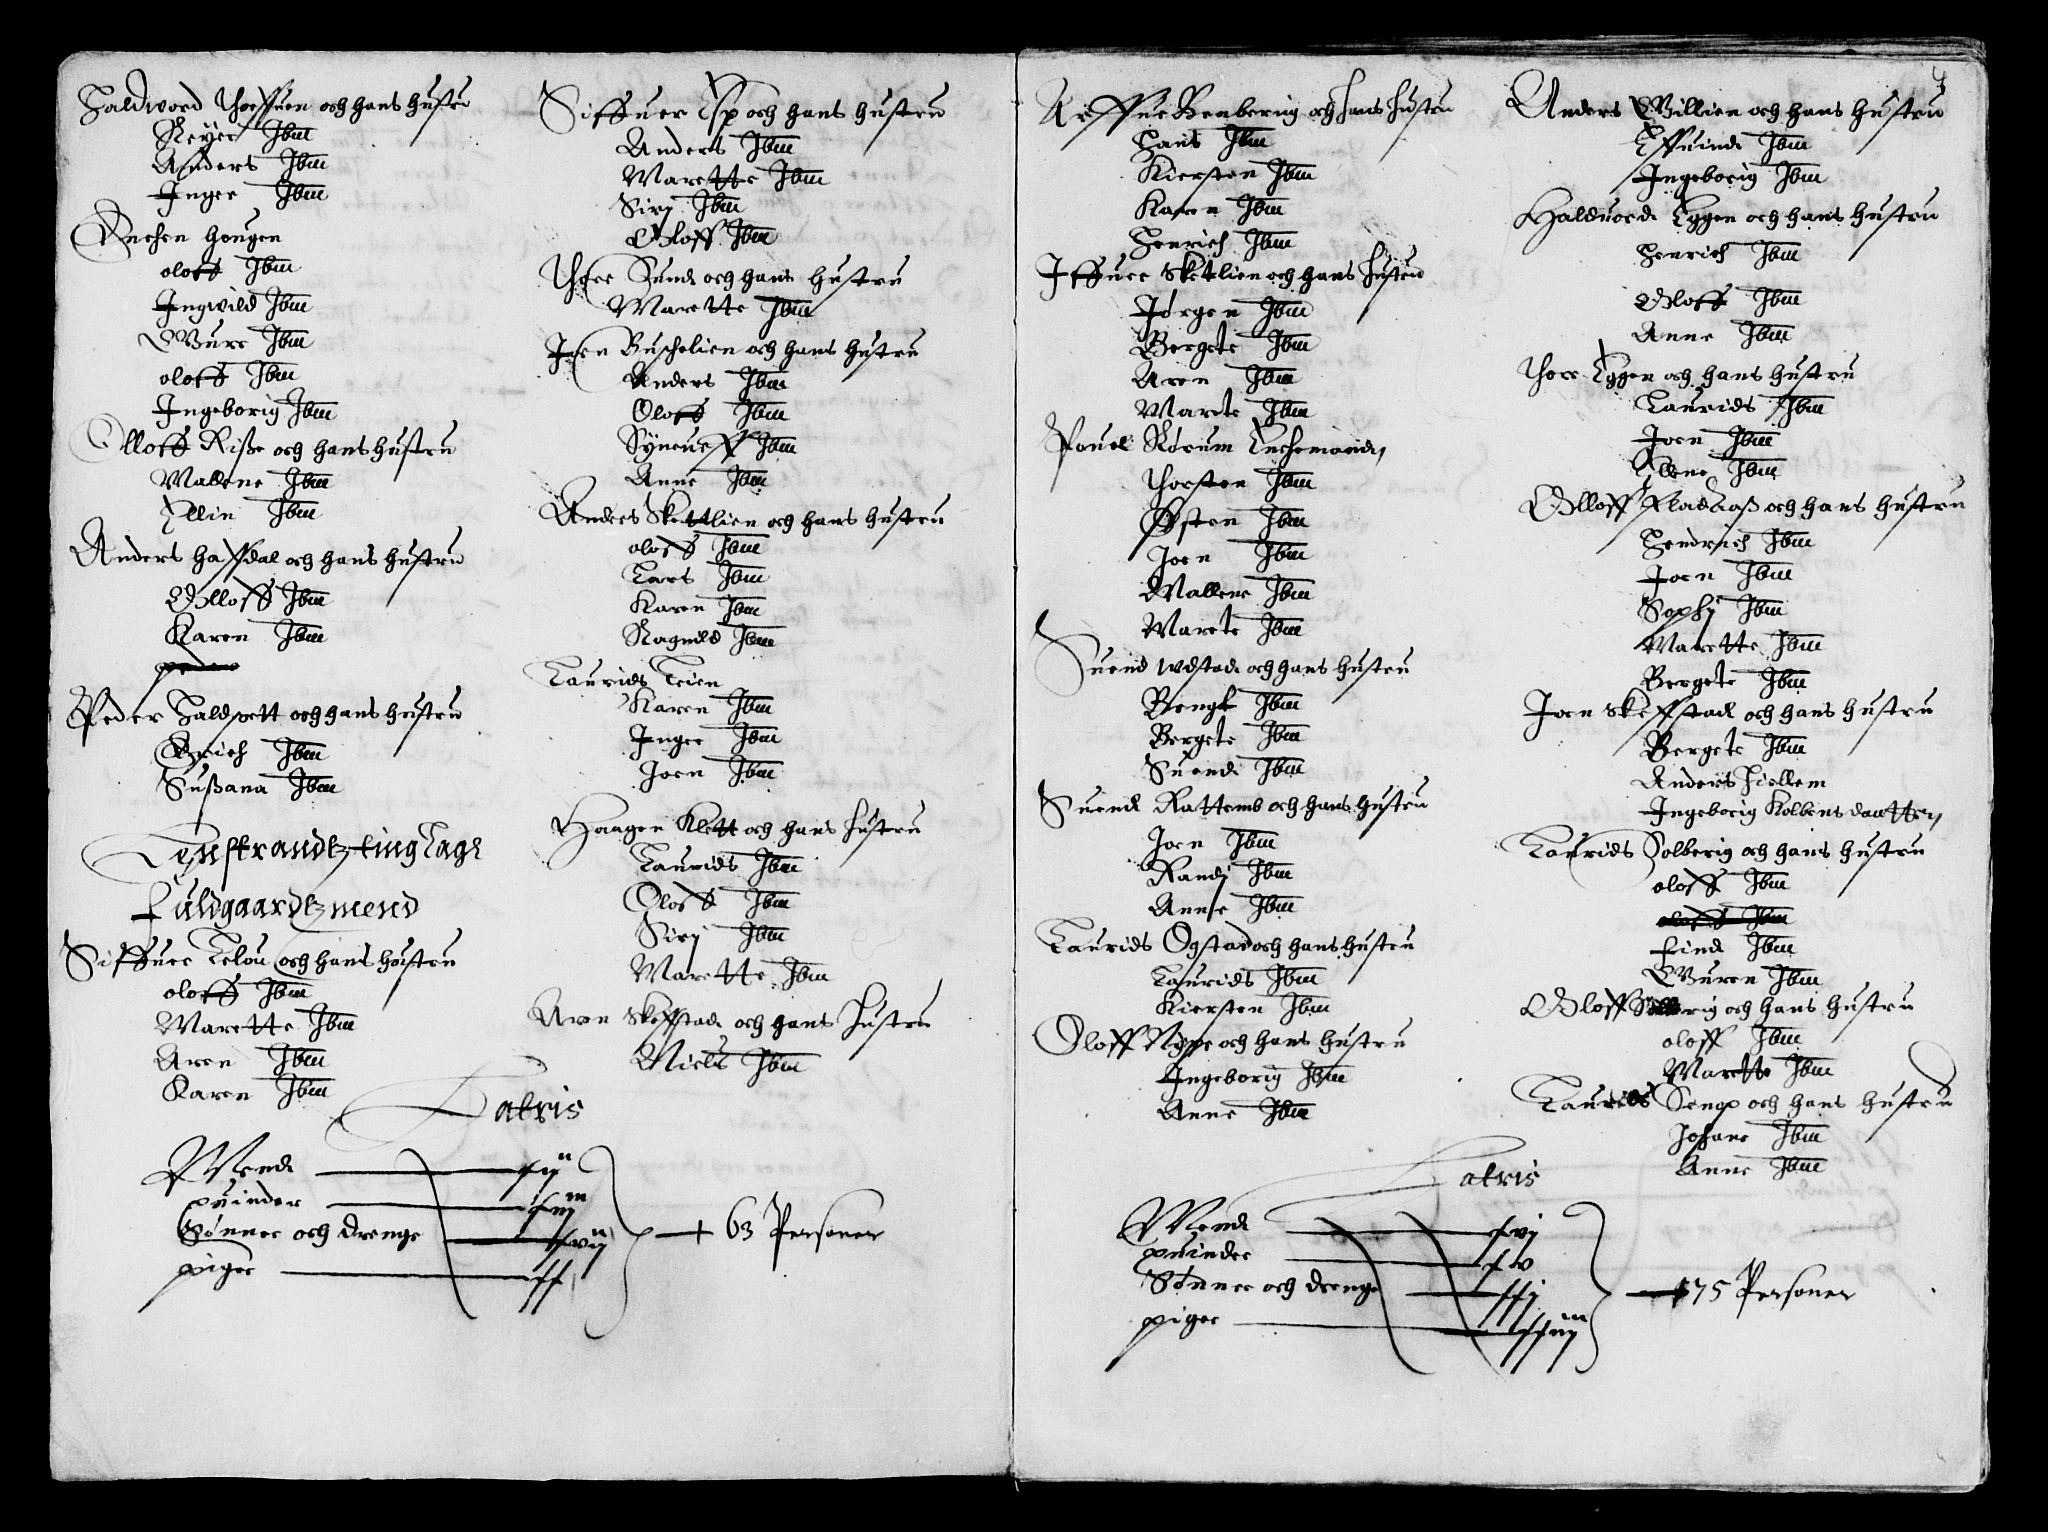 Haldword Thorffuen och hans hustru
Reyer Ibm
Anders Ibm
Inger Ibm
Enchen Hougen
oloff Ibm
Ingwild Ibm
Guru Ibm
oloff Ibm
Ingeborig Ibm
Olloff Riße och hans hustru
Mallene Ibm
Ellin Ibm
Anders Haffdal och hans hustru
Olloff Ibm
Karen Ibm
Peder Haldsett och hans hustru
Erich Ibm
Sußana Ibm
Leinstrandtz tinglagh
Fuldgaardtzmend
Siffuer Kelou och hans hustru
oloff Ibm
Marette Ibm
Aren Ibm
Karen Ibm
Siffuer Esp och hans hustru
Anders Ibm
Marette Ibm
Sirj Ibm
Oloff Ibm
Thore Sund och hans hustru
Marette Ibm
Joen Buschelien och hans hustru
Anders Ibm
Oloff Ibm
Syneuff Ibm
Anne Ibm
Anders Skettlien och hans hustru
oloff Ibm
Lars Ibm
Karen Ibm
Ragnild Ibm
Laurids Leien
Karen Ibm
Inger Ibm
Joen Ibm
Haagen Klett och hans hustru
Laurids Ibm
Oloff Ibm
Sirj Ibm
Marette Ibm
Aren Skeffstad och hans hustru
Niels Ibm
Latris
Mend xij
quinder xiiij
Sønner och drenge xvij
piger xx
63 Personer
Arffue Renberig och hans hustru
Hans Ibm
Kiersten Ibm
Karen Ibm
Henrich Ibm
Iffuer Sketlien och hans hustru
Jørgen Ibm
Bergete Ibm
Aren Ibm
Marete Ibm
Pouel Rørum Enchemand,
Thorsten Ibm
Østen Ibm
Joen Ibm
Mallene Ibm
Marete Ibm
Suend Udstad och hans hustru
Bengt Ibm
Bergete Ibm
Suend Ibm
Suend Rattemb och hans hustru
Joen Ibm
Randj Ibm
Anne Ibm
Laurids Ogstad och hans hustru
Laurids Ibm
Kiersten Ibm
Oloff Nype och hans hustru
Ingeborig Ibm
Anne Ibm
Anders Willien och hans hustru
Effuind Ibm
Ingeborig Ibm
Halduord Eggen och hans hustru
Henrich Ibm
Oloff Ibm
Anne Ibm
Thore Eggen och hans hustru
Laurids Ibm
Joen Ibm
Ellene Ibm
Olloff Fladaaß och hans hustru
Hendrich Ibm
Joen Ibm
Sophj Ibm
Marette Ibm
Bergete Ibm
Joen Skeffstad och hans hustru
Bergete Ibm
Anders Hiellem
Ingeborig Kolbens daatter,
Laurids Solberig och hans hustru
oloff Ibm
oloff Ibm
Find Ibm
Guren Ibm
Oloff Solberig och hans hustru
oloff Ibm
Marette Ibm
Laurids Seng och hans hustru
Johane Ibm
Anne Ibm
Latris
Mend xvj
quinder xv
Sønner och drenge xxj
piger xxiij
75 Personer